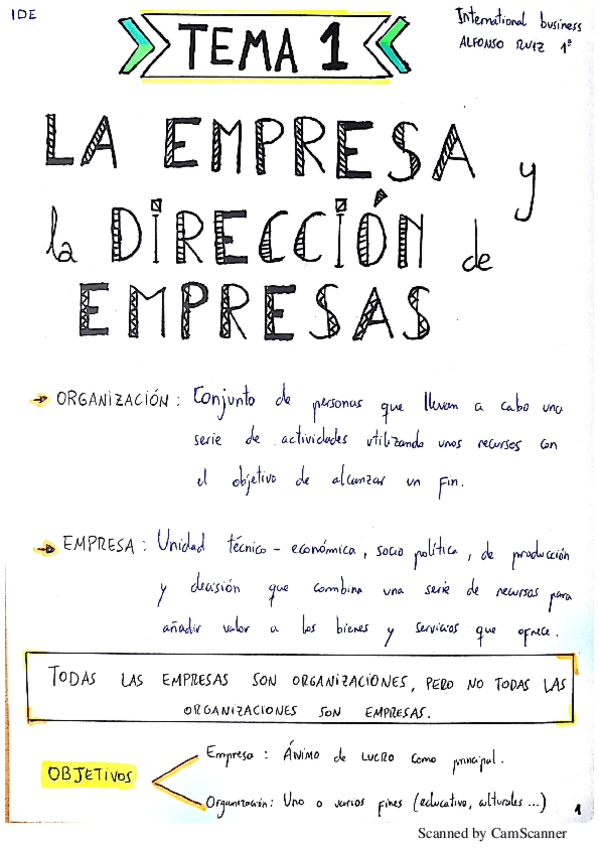 IDE
International business
ALFONSO RUIZ 1º
TEMA 1
LA EMPRESA y
la DIRECCIÓN de
EMPRESAS
→ ORGANIZACIÓN: Conjunto de personas que llevan a cabo una
serie de actividades utilizando unos recursos con
el objetivo de alcanzar un fin.
→ EMPRESA: Unidad técnico-económica, socio política, de producción
y decisión que combina una serie de recursos para
añadir valor a los bienes y servicios que ofrece.
TODAS LAS EMPRESAS SON ORGANIZACIONES, PERO NO TODAS LAS
ORGANIZACIONES SON EMPRESAS.
OBJETIVOS
Empresa: ÁNIMO de LUCRO como principal.
Organización: Uno o varios fines (educativo, culturales...)
1
Scanned by CamScanner